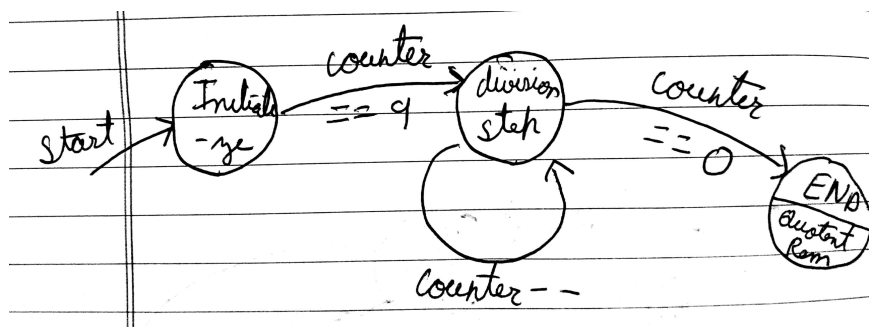 start
Initiali
-ze
counter
== 9
division
step
counter--
counter
== 0
END
Quotent
Rem